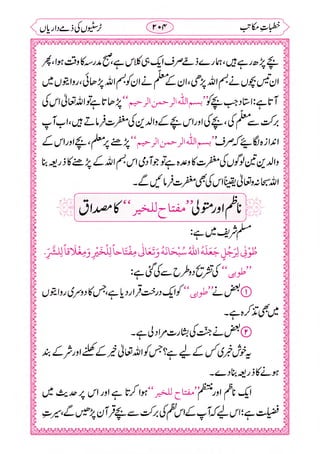 خطباتِ مکاتب
۲۰۴
ٹرسٹیوں کی ذمے داریاں
بچے پڑھ رہے ہیں، ہمارے ذمے صرف ایک ہی کلاس ہے، صبح مدرسہ کا وقت ہوا، پھر
ان تین بچوں نے بسم اللہ پڑھی، ان کے معلم نے ان کو بسم اللہ پڑھائی، روایتوں میں
آتا ہے: استاد جب بچے کو ’’بسم اللہ الرحمن الرحیم‘‘ پڑھاتا ہے تو اللہ تعالیٰ اس کی
برکت سے معلم کی، بچے کی اور اس بچے کے والدین کی مغفرت فرماتے ہیں، اب آپ
اندازہ لگائیے کہ صرف ’’بسم اللہ الرحمن الرحیم‘‘ پڑھنے پر معلم، بچے اور اس کے
والدین تین لوگوں کی مغفرت کا وعدہ ہے تو جو آدمی اس بسم اللہ کے پڑھنے کا ذریعہ بنا
اللہ سبحانہ وتعالیٰ یقیناً اس کی بھی مغفرت فرمائیں گے۔
ناظم اور متولی ’’مفتاح للخیر‘‘ کا مصداق
مسلم شریف میں ہے:
طُوْبٰى لِرَجُلٍ جَعَلَهُ اللهُ سُبْحَانَهُ وَتَعَالٰى مِفْتَاحاً لِلْخَيْرِ وَمِغْلَاقاً لِلشَّرِّ.
’’طوبی‘‘ کی تشریح دو طرح سے کی گئی ہے:
① بعض نے ’’طوبی‘‘ کو ایک درخت قرار دیا ہے، جس کا دوسری روایتوں
میں بھی تذکرہ ہے۔
② بعض نے جنت کی بشارت مراد لی ہے۔
یہ خوش خبری کس کے لیے ہے؟ جس کو اللہ تعالیٰ خیر کے کھلنے کے اور شر کے بند
ہونے کا ذریعہ بنا دے۔
ایک ناظم اور منتظم ’’مفتاح للخیر‘‘ ہوا کرتا ہے اور اس پر حدیث میں
فضیلت ہے؛ اس لیے کہ آپ کے اس نظم کی برکت سے بچے قرآن پڑھیں گے، سیرتِ